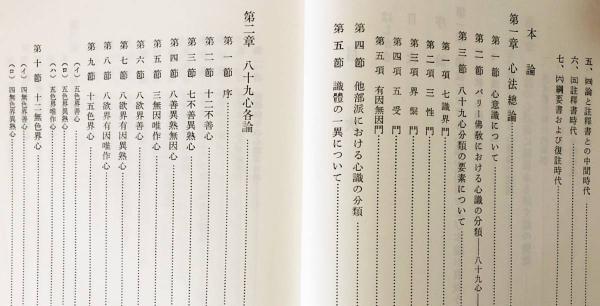 五、㈣論と註釋書との中間時代
六、㈤註釋書時代
七、㈥綱要書および復註時代
本論
第一章 心法總論
第一節 心意識について
第二節 パリー佛敎における心識の分類——八十九心
第三節 八十九心分類の要素について
第一項 七識界門
第二項 三性門
第三項 界繫門
第四項 五受門
第五項 有因無因門
第四節 他部派における心識の分類
第五節 識體の一異について
第二章 八十九心各論
第一節 序
第二節 十二不善心
第三節 七不善異熟心
第四節 八善異熟無因心
第五節 三無因唯作心
第六節 八欲界善心
第七節 八欲界有因異熟心
第八節 八欲界有因唯作心
第九節 十五色界心
(イ) 五色界善心
(ロ) 五色界異熟心
(ハ) 五色界唯作心
第十節 十二無色界心
(イ) 四無色界善心
(ロ) 四無色界異熟心